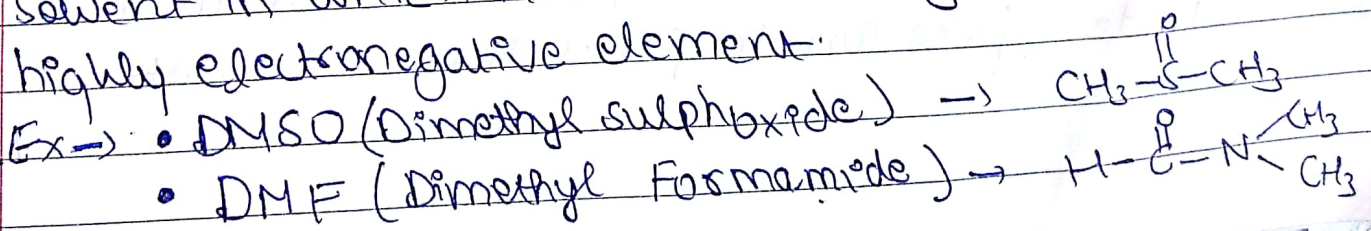 highly electronegative element.
Ex→ • DMSO (Dimethyl sulphoxide) → CH3-S-CH3
O
• DMF (Dimethyl Formamide) → H-C-N
O
CH3
CH3